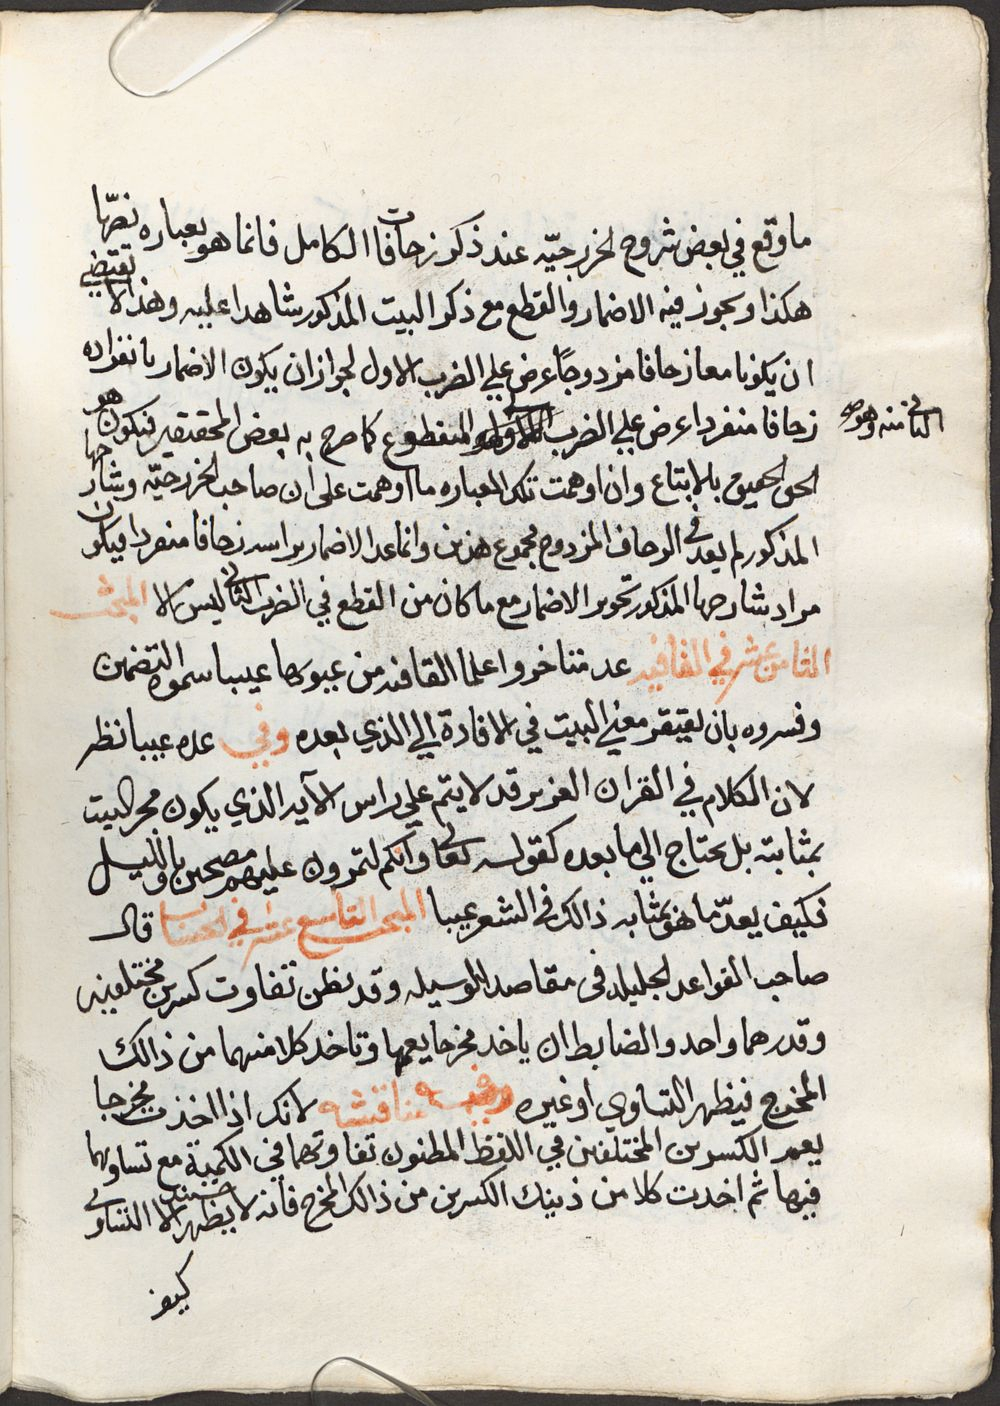 ما وقع في بعض شروح الخزرجيّه عند ذكر زحافات الكامل فانما هو بعباره نصّها
هكذا ويجوز فيه الاضمار والقطع مع ذكر البيت المذكور شاهدا عليه وهذا لا يقتضي
ان يكونا معا زحافا مزدوجًا عرض علي الضرب الاول لجواز ان يكون الاضمار بانفراده
زحافا منفردا عرض علي الضرب المقطوع كما صرح به بعض المحققين فيكون هو
الثاني منه وهو
الحق الحقيق بالاتباع وان اوهمت تلك العباره ما اوهمت علي ان صاحب الخزرجيّه وشارحها
المذكور لم يعد في الزحاف المزدوج مجموع هذين وانما عد الاضمار براسه زحافا منفردا فيكون
مراد شارحها المذكور تجويز الاضمار مع ما كان من القطع في الضرب الثاني ليس الا المبحث
الثامن عشر في القافيه عد متاخروا علما القافيه من عيوبها عيبا سموه التضمين
وفسروه بان يفتقر معني البيت في الافادة الي الذي بعده وفي عده عيبا نظر
لان الكلام في القران العزيز قد لا يتم علي راس الآيه الذي يكون عجز البيت
بمثابته بل يحتاج الي ما بعده كقوله تعالى وانكم لتمرون عليهم مصبحين وبالليل
فكيف يعدّ ما هو بمثابه ذالك في الشعر عيبا المبحث التاسع عشر في الحساب قال
صاحب القواعد الجليله في مقاصد الوسيله وقد يظن تفاوت كسرين مختلفين
وقدرهما واحد والضابط ان ياخد مخرجا يعمها وتاخد كلا منهما من ذالك
المخرج فيظهر التساوي او غيره وفيه مناقشه لانك اذا اخذت مخرجا
يعم الكسرين المختلفين في اللفظ المظنون تفاوتهما في الكمية مع تساويهما
فيها ثم اخدت كلا من ذينك الكسرين من ذالك المخرج فانه لا يظهر حينئذ الا التساوي
كيف